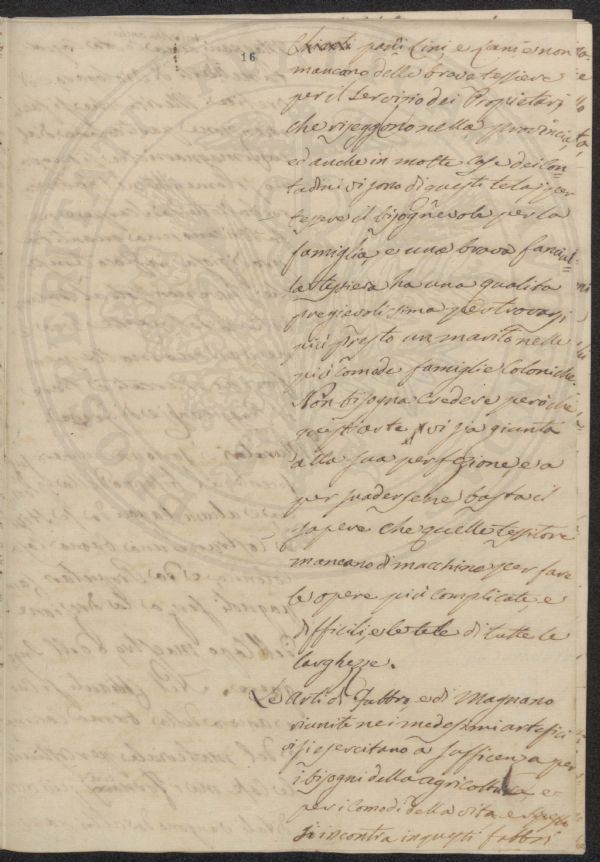 16
padi Lini e Lani e non
mancano delle brave tessiere
per il servizio dei Proprietari
che riseggono nella provincia
ed anche in molte Case dei Con=
tadini vi sono di questi telaj per
tesere il bisognevole per la
famiglia, e una brava fanciul=
la tessiera ha una qualità
pregievolissima per trovarsi
più presto un marito nelle
più Comode famiglie Coloniche.
Non bisogna Credere però che
quest'arte vi sia giunta
alla sua perfezione e a
persuadersene basta il
sapere che quelle tessitore
mancano di macchine per fare
le opere più complicate, e
difficili, e le tele di tutte le
larghezze.
Le Arti di Fabbro e di Magnano
riunite nei medesimi artefici
si esercitano a sufficenza per
i bisogni della agricoltura, e
per i Comodi della vita e spesso
si incontra in questi fabbri